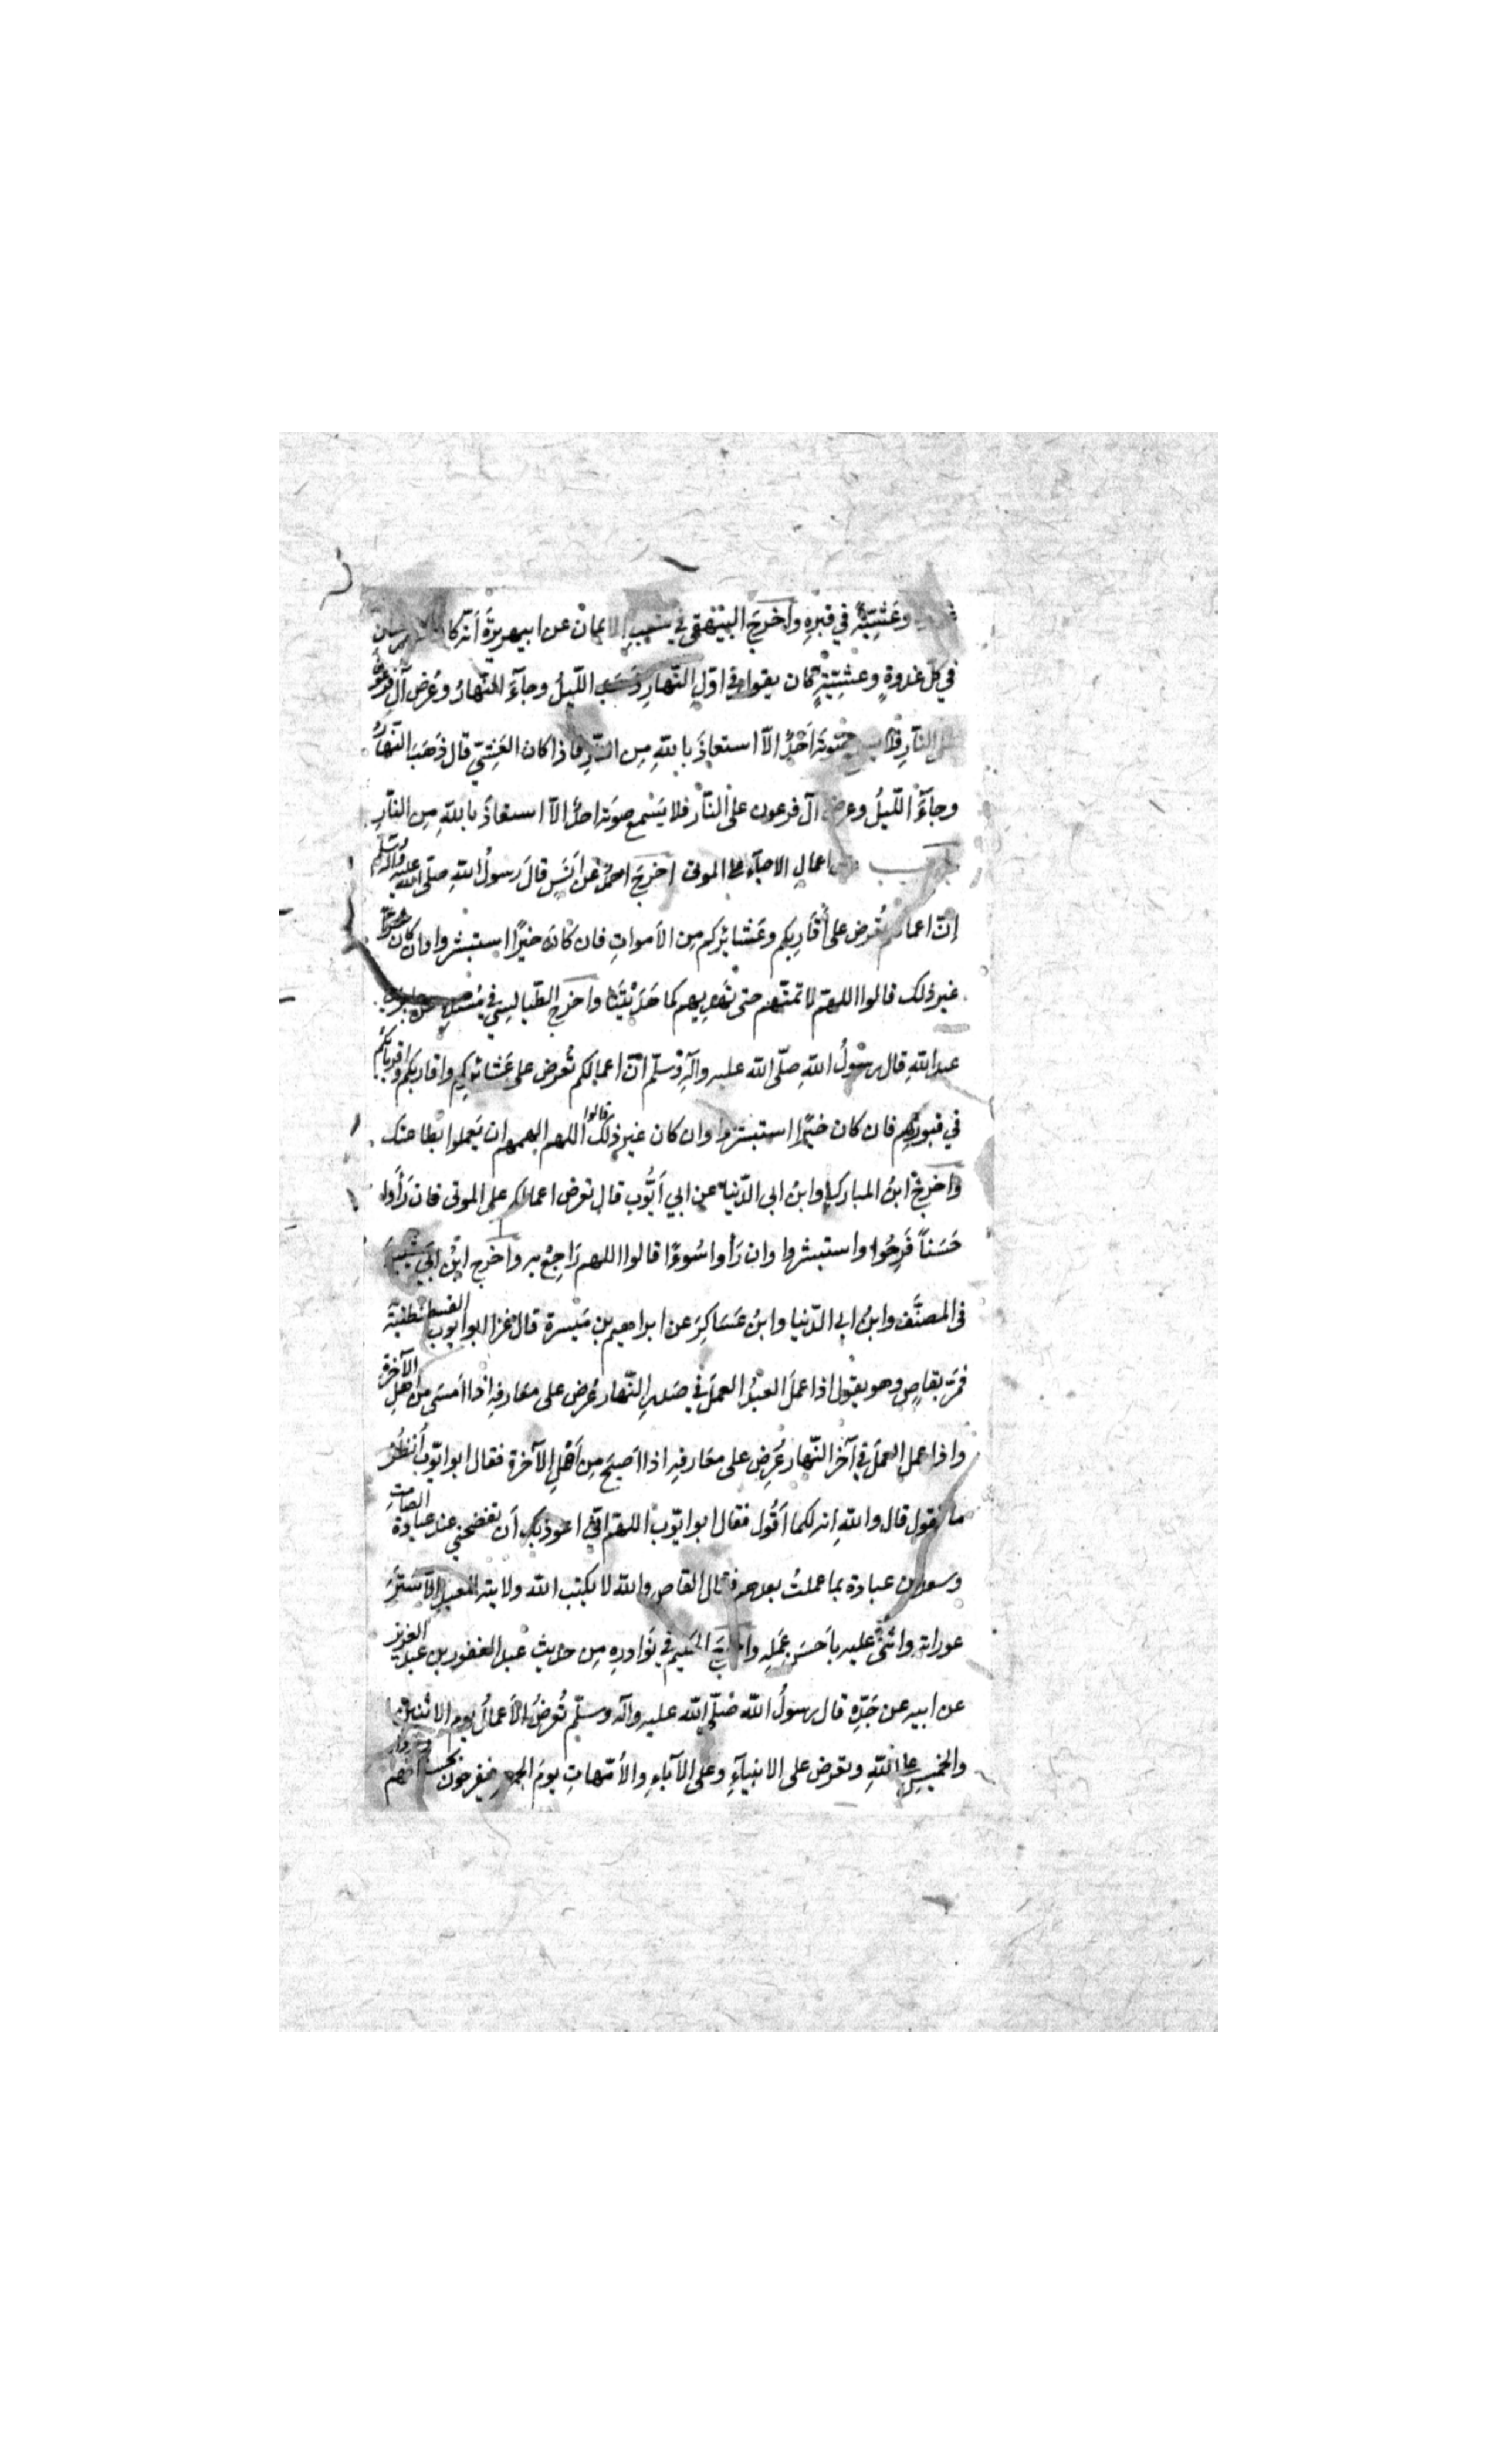 وعَشِيَّةً في قبرِهِ واخرَجَ البَيْهَقي في شعبِ الايمان عن ابي هريرةَ أنّه كا
في كل غدوةٍ وعشِيّةٍ كان يقول في اوّلِ النّهارِ ذهَبَ اللّيلُ وجاءَ النّهارُ وعُرض آلُ فرعون
على النّارِ فلا يسمع صوتَه اَحَدٌ الّا استعاذَ باللّهِ مِن النّارِ فاذا كان العَشِيّ قال ذَهَبَ النّهارُ
وجاءَ اللّيلُ وعرض آل فرعون على النّار فلا يَسْمع صوتَه احدٌ الّا استعاذَ باللّهِ مِن النّارِ
اعمالِ الاحياء على الموتى اخرَجَ احمدُ عن اَنَسٍ قالَ رَسولُ اللّهِ صلّى اللّه عليه وآله وسلّم
إنّ اعمالكم تُعرض على أقَارِبِكم وعَشائرِكم مِن الأمواتِ فان كانَ خيْرًا استبشروا وان كان
غير ذلك قالوا اللهمّ لا تمتهم حتى تَهْدِيهم كما هَدَيْتَنا واخرَج الطّيالِسي في مُسْنَدِه عن جابر بن
عبد اللّهِ قال رسُولُ اللّهِ صلّى اللّه عليه وآلهِ وسلّم انّ اعمالكم تُعرَض على عَشائركم واقاربكم واقربائكم
في قبورِهم فان كان خيْرًا استبشروا وان كان غير ذلك قالوا اللهم الهمهم ان يَعملوا بطاعتك
واخرجَ ابنُ المبارك وابنُ ابى الدّنيا عن ابي اَيُّوب قال تعرض اعمالكم على الموتى فان رَأَوا
حَسَناً فَرِحُوا واستبشروا وان رَأوا سُوءًا قالوا اللهم رَاجِعْ به واخرج ابْنُ ابي شَيْبَةَ
فى المصنَّف وابنُ ابى الدّنيا وابنُ عَسَاكِرَ عن ابراهيم بن مَيْسرة قال غزا ابو ايّوب القسطنطنيّة
فمَرّ بقاصٍ وهو يقول اذا عملَ العبدُ العملَ في صَدرِ النّهار عُرض على معَارفِهِ اذا امَسى من اهلِ الآخرة
واذا عمل العملَ في آخر النّهار عُرِض على معَارفِهِ اذا اَصبحَ مِن اَهْلِ الآخرة فقال ابو ايّوب اُنْظُر
ما تقول قال واللّهِ انه لكما اَقُول فقال ابو ايّوب اللهمّ انّي اعوذ بك اَن تفضحني عند عبادة الصّامت
وسعد بن عبادة بما عملتُ بعدهم فقال القاص واللّه لا يكتب اللّه ولايته لعبدٍ الّا سَتَرَ
عوراته واثْنَى عليه باَحسَنِ عمَلِه واخرجَ الحكيم في نَوادرِهِ مِن حديث عبد الغفور بن عبد العزيز
عن ابيه عن جَدّهِ قال رسولُ اللّه صَلّى اللّه عليه وآله وسلّم تُعْرَضُ الأعمالُ يوم الاثنين
والخميس على اللّهِ وتعرض على الانبياءِ وعلى الآباءِ والأمّهاتِ يومَ الجمعةِ فيفرحون بحسناتهم